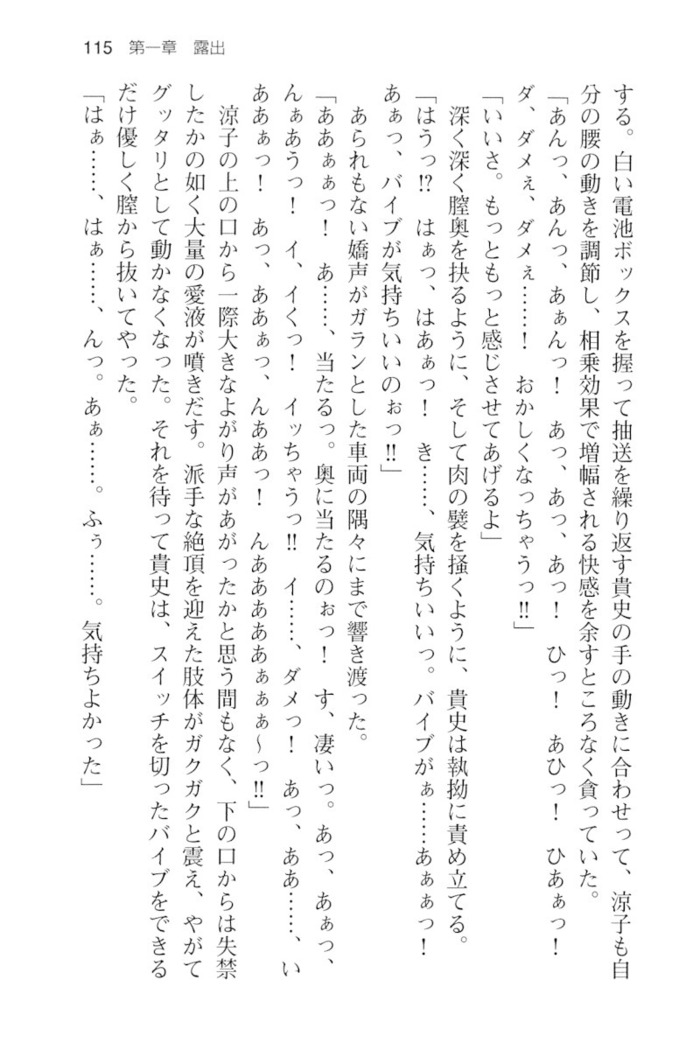 115　第一章　露出
する。白い電池ボックスを握って抽送を繰り返す貴史の手の動きに合わせって、涼子も自
分の腰の動きを調節し、相乗効果で増幅される快感を余すところなく貪っていた。
「あんっ、あんっ、あぁんっ！　あっ、あっ、あっ！　ひっ！　あひっ！　ひあぁっ！
ダ、ダメぇ、ダメぇ……！　おかしくなっちゃうっ‼」
「いいさ。もっともっと感じさせてあげるよ」
　深く深く膣奥を抉るように、そして肉の襞を掻くように、貴史は執拗に責め立てる。
「はうっ⁉　はぁっ、はあぁっ！　き……、気持ちいいっ。バイブがぁ……あぁぁっ！
あぁっ、バイブが気持ちいいのぉっ‼」
　あられもない嬌声がガランとした車両の隅々にまで響き渡った。
「ああぁぁっ！　あ……、当たるっ。奥に当たるのぉっ！　す、凄いっ。あっ、あぁっ、
んぁあうっ！　イ、イくっ！　イッちゃうっ‼　イ……、ダメっ！　あっ、ああ……、い
ああぁっ！　あっ、ああぁっ、んああっ！　んあああああぁぁぁ～っ‼」
　涼子の上の口から一際大きなよがり声があがったかと思う間もなく、下の口からは失禁
したかの如く大量の愛液が噴きだす。派手な絶頂を迎えた肢体がガクガクと震え、やがて
グッタリとして動かなくなった。それを待って貴史は、スイッチを切ったバイブをできる
だけ優しく膣から抜いてやった。
「はぁ……、はぁ……、んっ。あぁ……。ふぅ……。気持ちよかった」